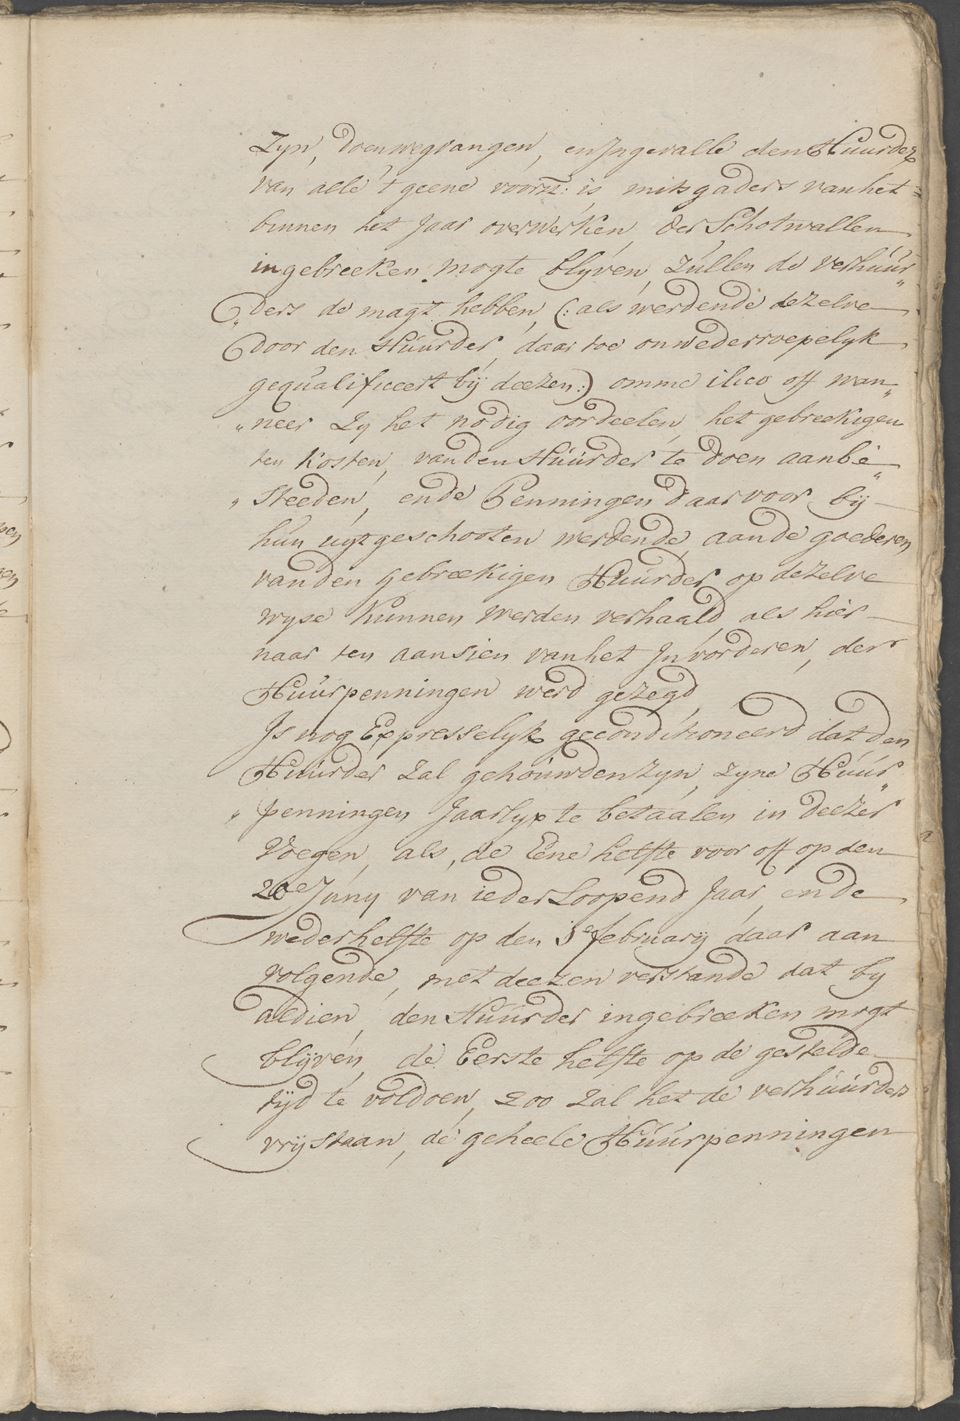 Zyn, doen wegvangen, en Ingevalle den Huurder
van alle 't geene voorsz: is mitsgaders van het
binnen het Jaar overwerken, der Schotwallen
in gebreeken mogte blyven, zullen de verhuur„
„ders de magt hebben, (: als werdende dezelve
door den Huurder, daar toe onwederroepelyk
gequalificeert bij deezen:) omme ilico off wan„
„neer Zy het nodig oordeelen, het gebreekigen
ten kosten, van den Huurder te doen aanbe„
„steeden, ende Penningen daar voor by
hun uytgeschooten werdende, aan de goederen
van den gebreekigen Huurder op dezelve
wyse kunnen werden verhaald als hier
naar ten aansien van het Invorderen, der
Huurpenningen werd gezegd
Is nog Expresselyk geconditioneerd dat den
Huurder zal gehouwden zyn, zyne Huur„
„penningen Jaarlyx te betaalen in deezer
Voegen, als, de Eene helfte voor off op den
20e Juny van ieder Loopend Jaar, ende
wederhelfte op den 5e february daar aan
volgende, met deezen verstande dat by
aldien, den Huurder in gebreeken mogt
blijven, de Eerste helfte op de gestelde
tijd te voldoen, zoo zal het de verhuurders
vrijstaan, de geheele Huurpenningen